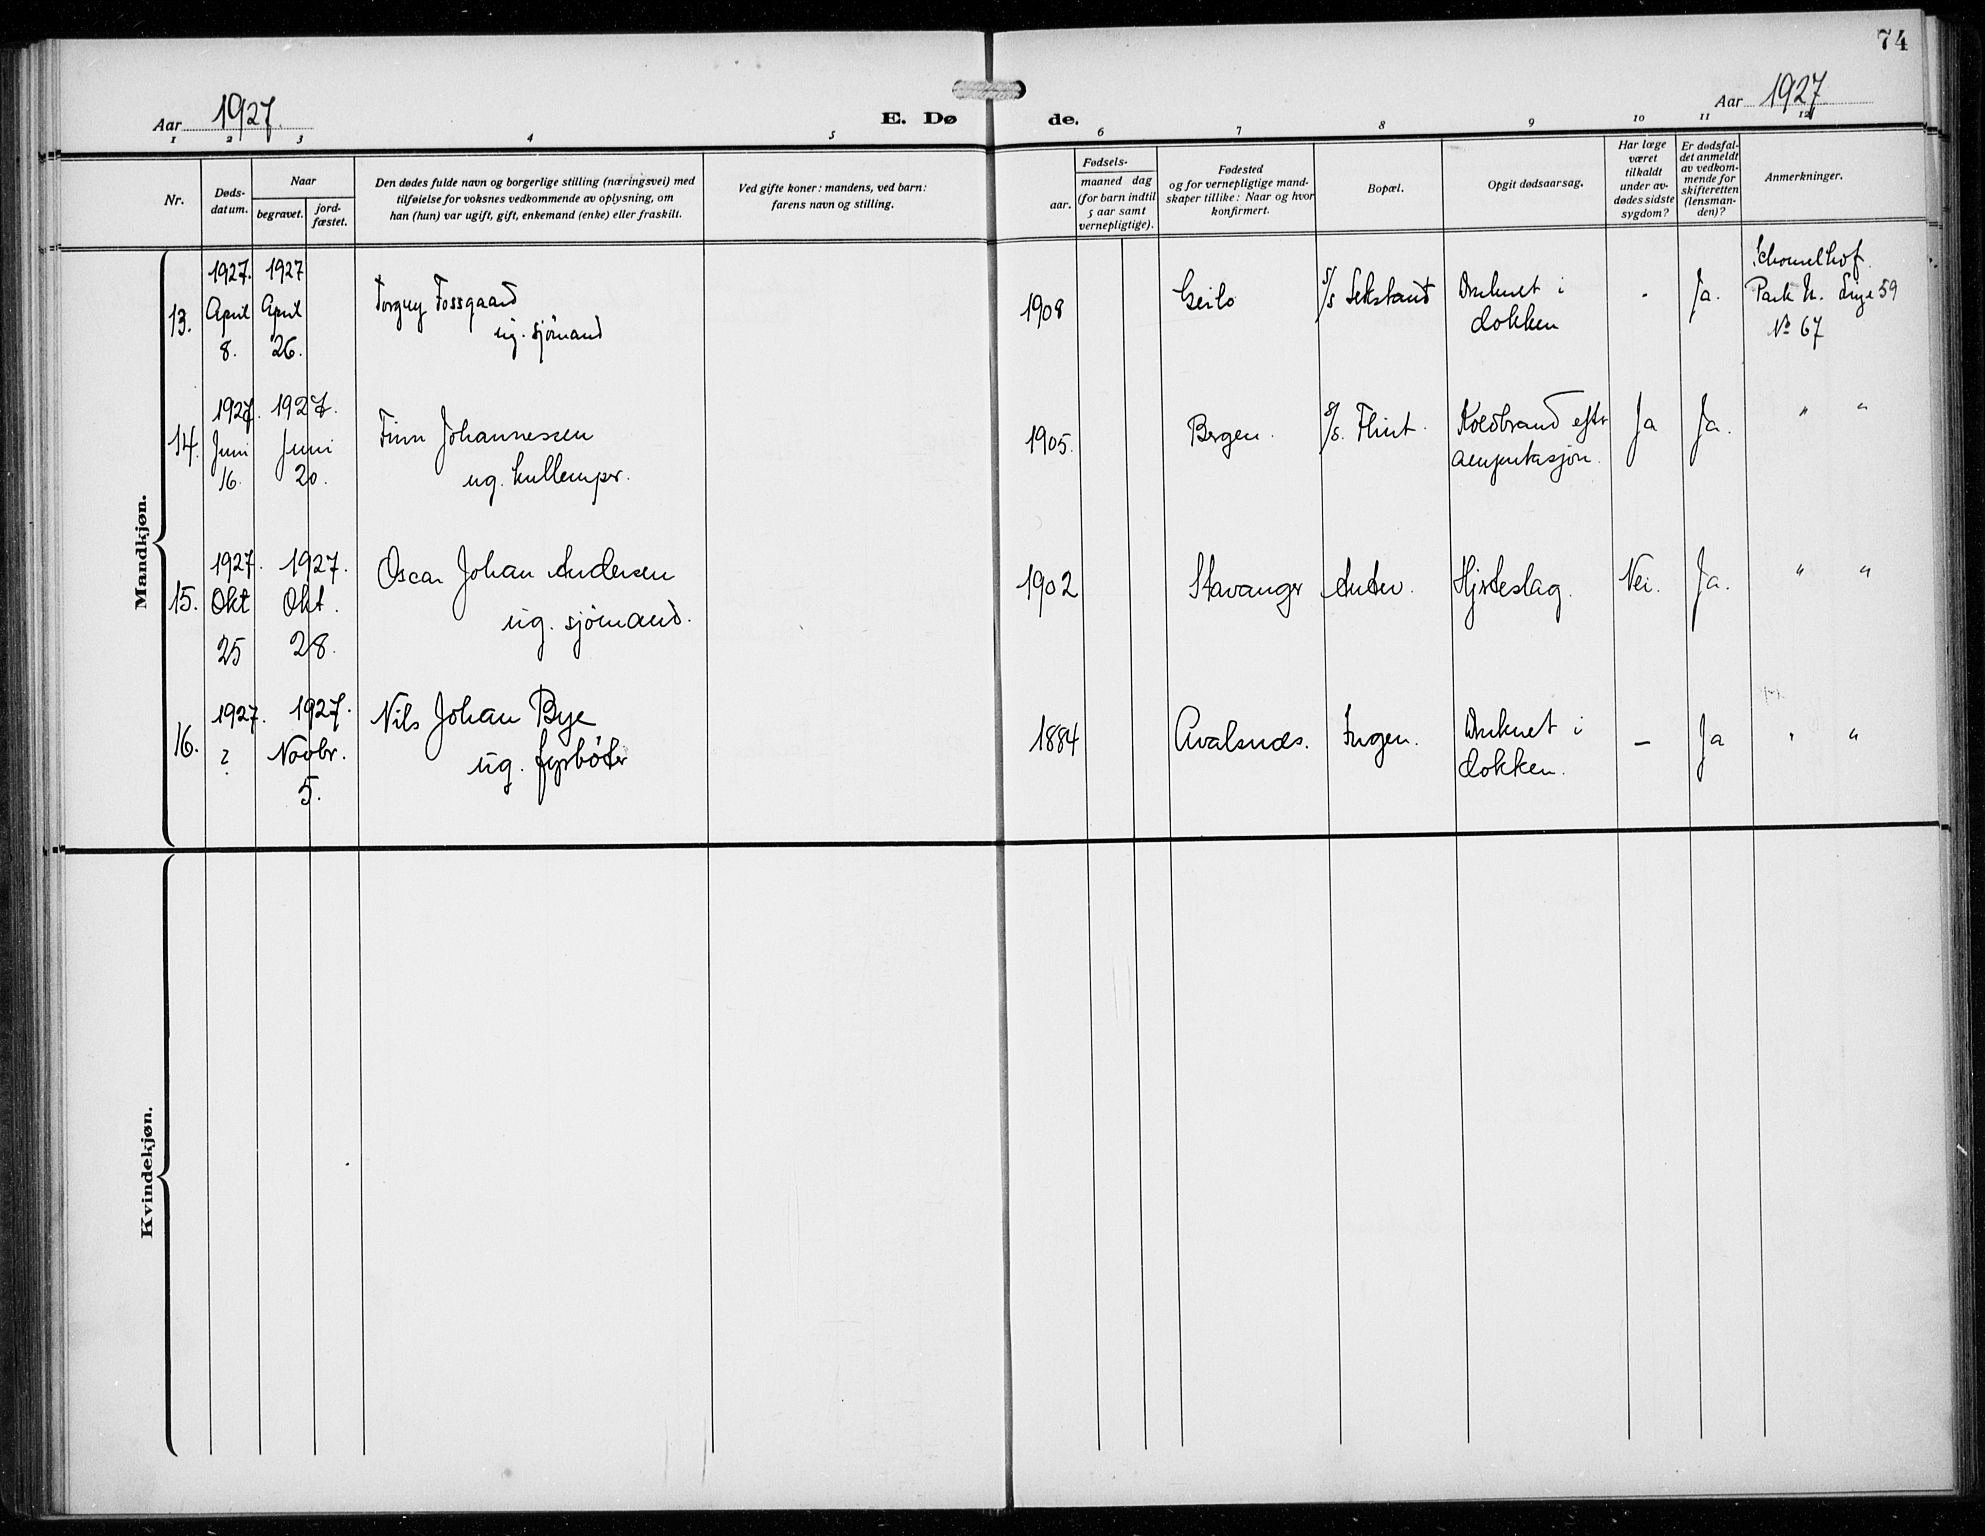 74
Aar 1927.
E. Dø
de.
Aar 1927
1 2 3 4 5 6 7 8 9 10 11 12
Nr.
Døds-
datum.
Naar
begravet.
jord-
fæstet.
Den dødes fulde navn og borgerlige stilling (næringsvei) med
tilføielse for voksnes vedkommende av oplysning, om
han (hun) var ugift, gift, enkemand (enke) eller fraskilt.
Ved gifte koner: mandens, ved barn:
farens navn og stilling.
Fødsels-
aar.
maaned dag
(for barn indtil
5 aar samt
vernepligtige).
Fødested
og for vernepligtige mand-
skaper tillike: Naar og hvor
konfirmert.
Bopæl.
Opgit dødsaarsag.
Har læge
været
tilkaldt
under av-
dødes sidste
sygdom?
Er dødsfal-
det anmeldt
av vedkom-
mende for
skifteretten
(lensman-
den)?
Anmerkninger.
Mandkjøn.
13.
1927.
April
8.
1927
April
26.
Torguy Fossgaard
ug. sjømand
1908
Geilo
S/S Sekstand
Druknet i
dokken
-
Ja.
Park N. 59
No 67
14.
1927.
Juni
16.
1927.
Juni
20.
Finn Johannessen
ug. kullemper.
1905.
Bergen.
S/S. Flint.
Koldbrand eftr
amputasjon.
Ja
Ja.
" "
15.
1927.
Okt
25
1927.
Okt.
28.
Oscar Johan Andersen
ug. sjømand.
1902
Stavanger
Antw.
Hjrteslag.
Nei.
Ja.
" "
16.
1927.
?
1927.
Novbr.
5.
Nils Johan Bye
ug. fyrbøter
1884
Avalsnes.
Ingen.
Druknet i
dokken.
–
Ja
" "
Kvindekjøn.